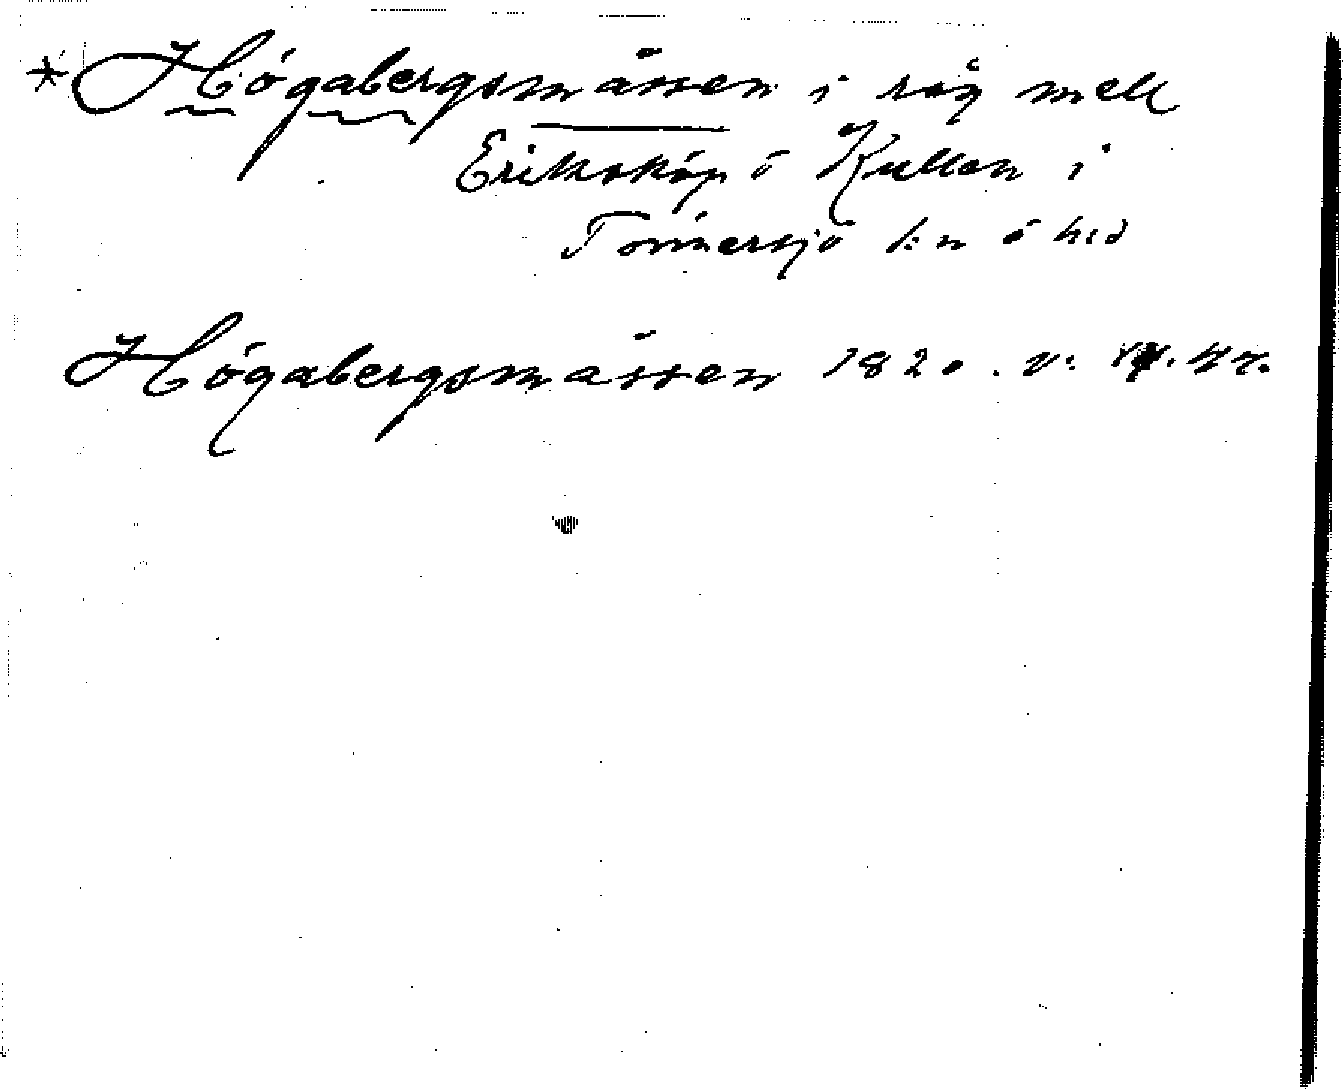 * Högabergsmåssen i råg mell
Eriksköp o Kullen i
Tönnersjö s:n o hd
Högabergsmåssen 1820. v.